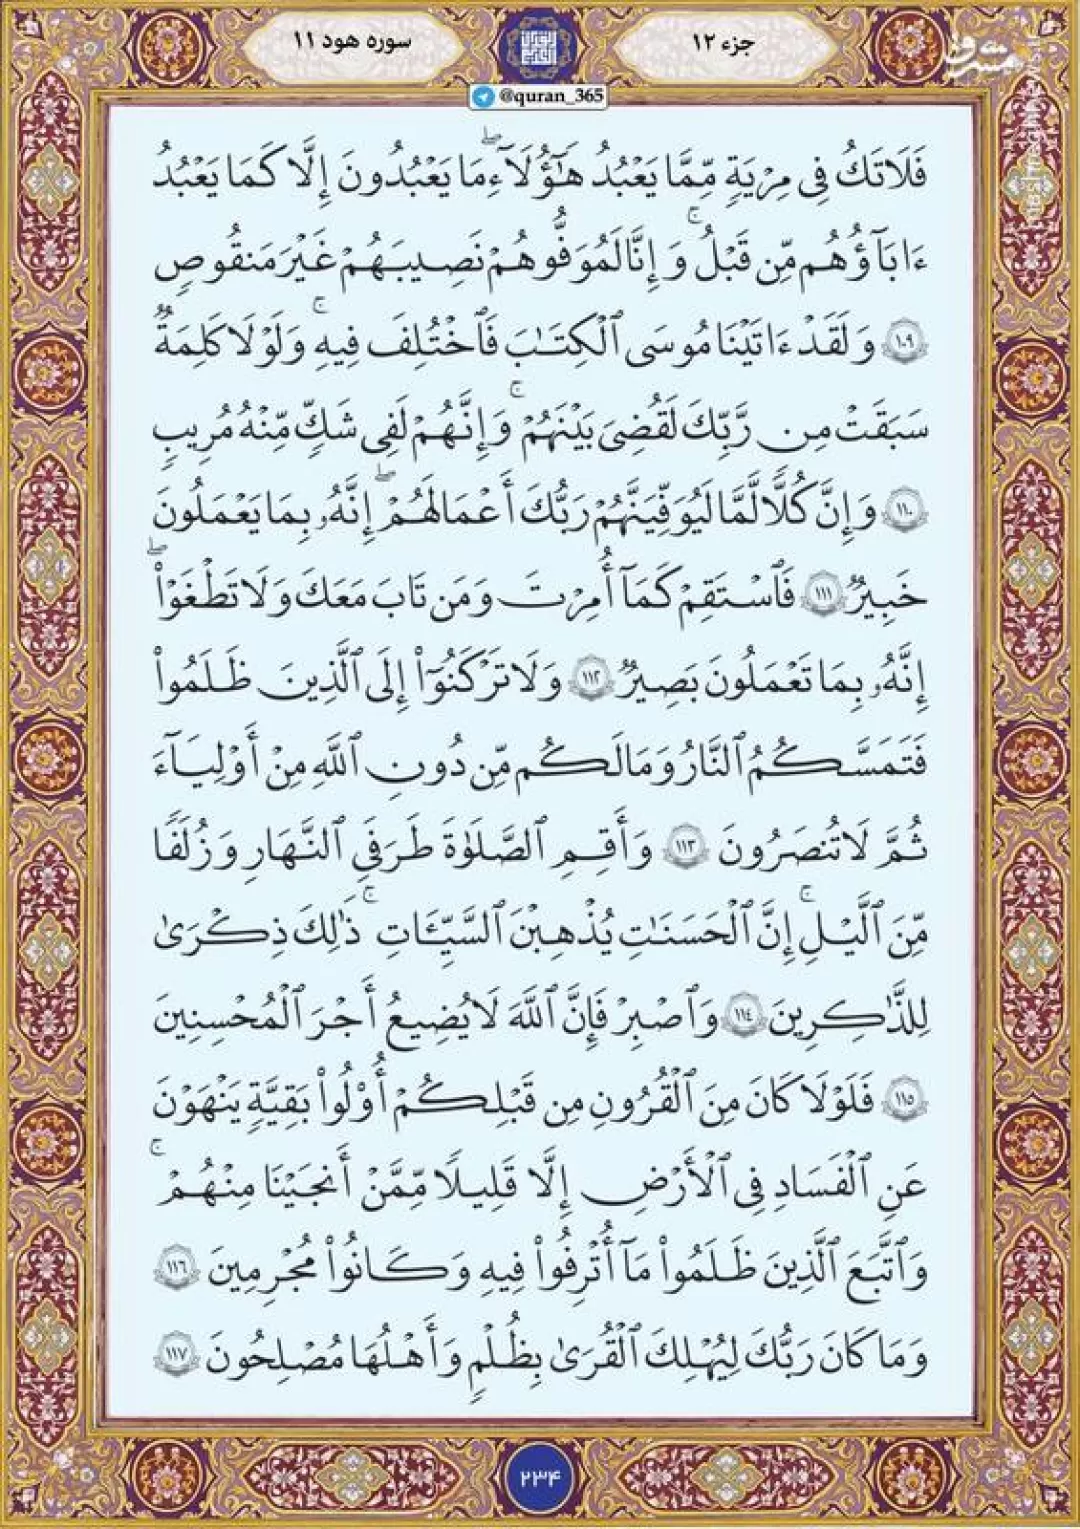 جزء ۱۲
سوره هود ۱۱
مشرق
@quran_365
فَلَا تَكُ فِى مِرْيَةٍ مِّمَّا يَعْبُدُ هَٰٓؤُلَآءِ ۖ مَا يَعْبُدُونَ إِلَّا كَمَا يَعْبُدُ
ءَابَآؤُهُم مِّن قَبْلُ ۚ وَإِنَّا لَمُوَفُّوهُمْ نَصِيبَهُمْ غَيْرَ مَنقُوصٍ
١٠٩ وَلَقَدْ ءَاتَيْنَا مُوسَى ٱلْكِتَٰبَ فَٱخْتُلِفَ فِيهِ ۚ وَلَوْلَا كَلِمَةٌ
سَبَقَتْ مِن رَّبِّكَ لَقُضِىَ بَيْنَهُمْ ۚ وَإِنَّهُمْ لَفِى شَكٍّ مِّنْهُ مُرِيبٍ
١١٠ وَإِنَّ كُلًّا لَّمَّا لَيُوَفِّيَنَّهُمْ رَبُّكَ أَعْمَٰلَهُمْ ۖ إِنَّهُۥ بِمَا يَعْمَلُونَ
خَبِيرٌ ١١١ فَٱسْتَقِمْ كَمَآ أُمِرْتَ وَمَن تَابَ مَعَكَ وَلَا تَطْغَوْا۟ ۖ
إِنَّهُۥ بِمَا تَعْمَلُونَ بَصِيرٌ ١١٢ وَلَا تَرْكَنُوٓا۟ إِلَى ٱلَّذِينَ ظَلَمُوا۟
فَتَمَسَّكُمُ ٱلنَّارُ وَمَا لَكُم مِّن دُونِ ٱللَّهِ مِنْ أَوْلِيَآءَ
ثُمَّ لَا تُنصَرُونَ ١١٣ وَأَقِمِ ٱلصَّلَوٰةَ طَرَفَىِ ٱلنَّهَارِ وَزُلَفًا
مِّنَ ٱلَّيْلِ ۚ إِنَّ ٱلْحَسَنَٰتِ يُذْهِبْنَ ٱلسَّيِّـَٔاتِ ۚ ذَٰلِكَ ذِكْرَىٰ
لِلذَّٰكِرِينَ ١١٤ وَٱصْبِرْ فَإِنَّ ٱللَّهَ لَا يُضِيعُ أَجْرَ ٱلْمُحْسِنِينَ
١١٥ فَلَوْلَا كَانَ مِنَ ٱلْقُرُونِ مِن قَبْلِكُمْ أُو۟لُوا۟ بَقِيَّةٍ يَنْهَوْنَ
عَنِ ٱلْفَسَادِ فِى ٱلْأَرْضِ إِلَّا قَلِيلًا مِّمَّنْ أَنجَيْنَا مِنْهُمْ ۗ
وَٱتَّبَعَ ٱلَّذِينَ ظَلَمُوا۟ مَآ أُتْرِفُوا۟ فِيهِ وَكَانُوا۟ مُجْرِمِينَ ١١٦
وَمَا كَانَ رَبُّكَ لِيُهْلِكَ ٱلْقُرَىٰ بِظُلْمٍ وَأَهْلُهَا مُصْلِحُونَ ١١٧
۲۳۴